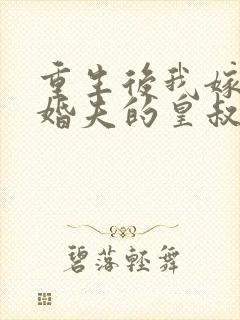 重生後我嫁
婚夫的皇叔
碧落輕舞